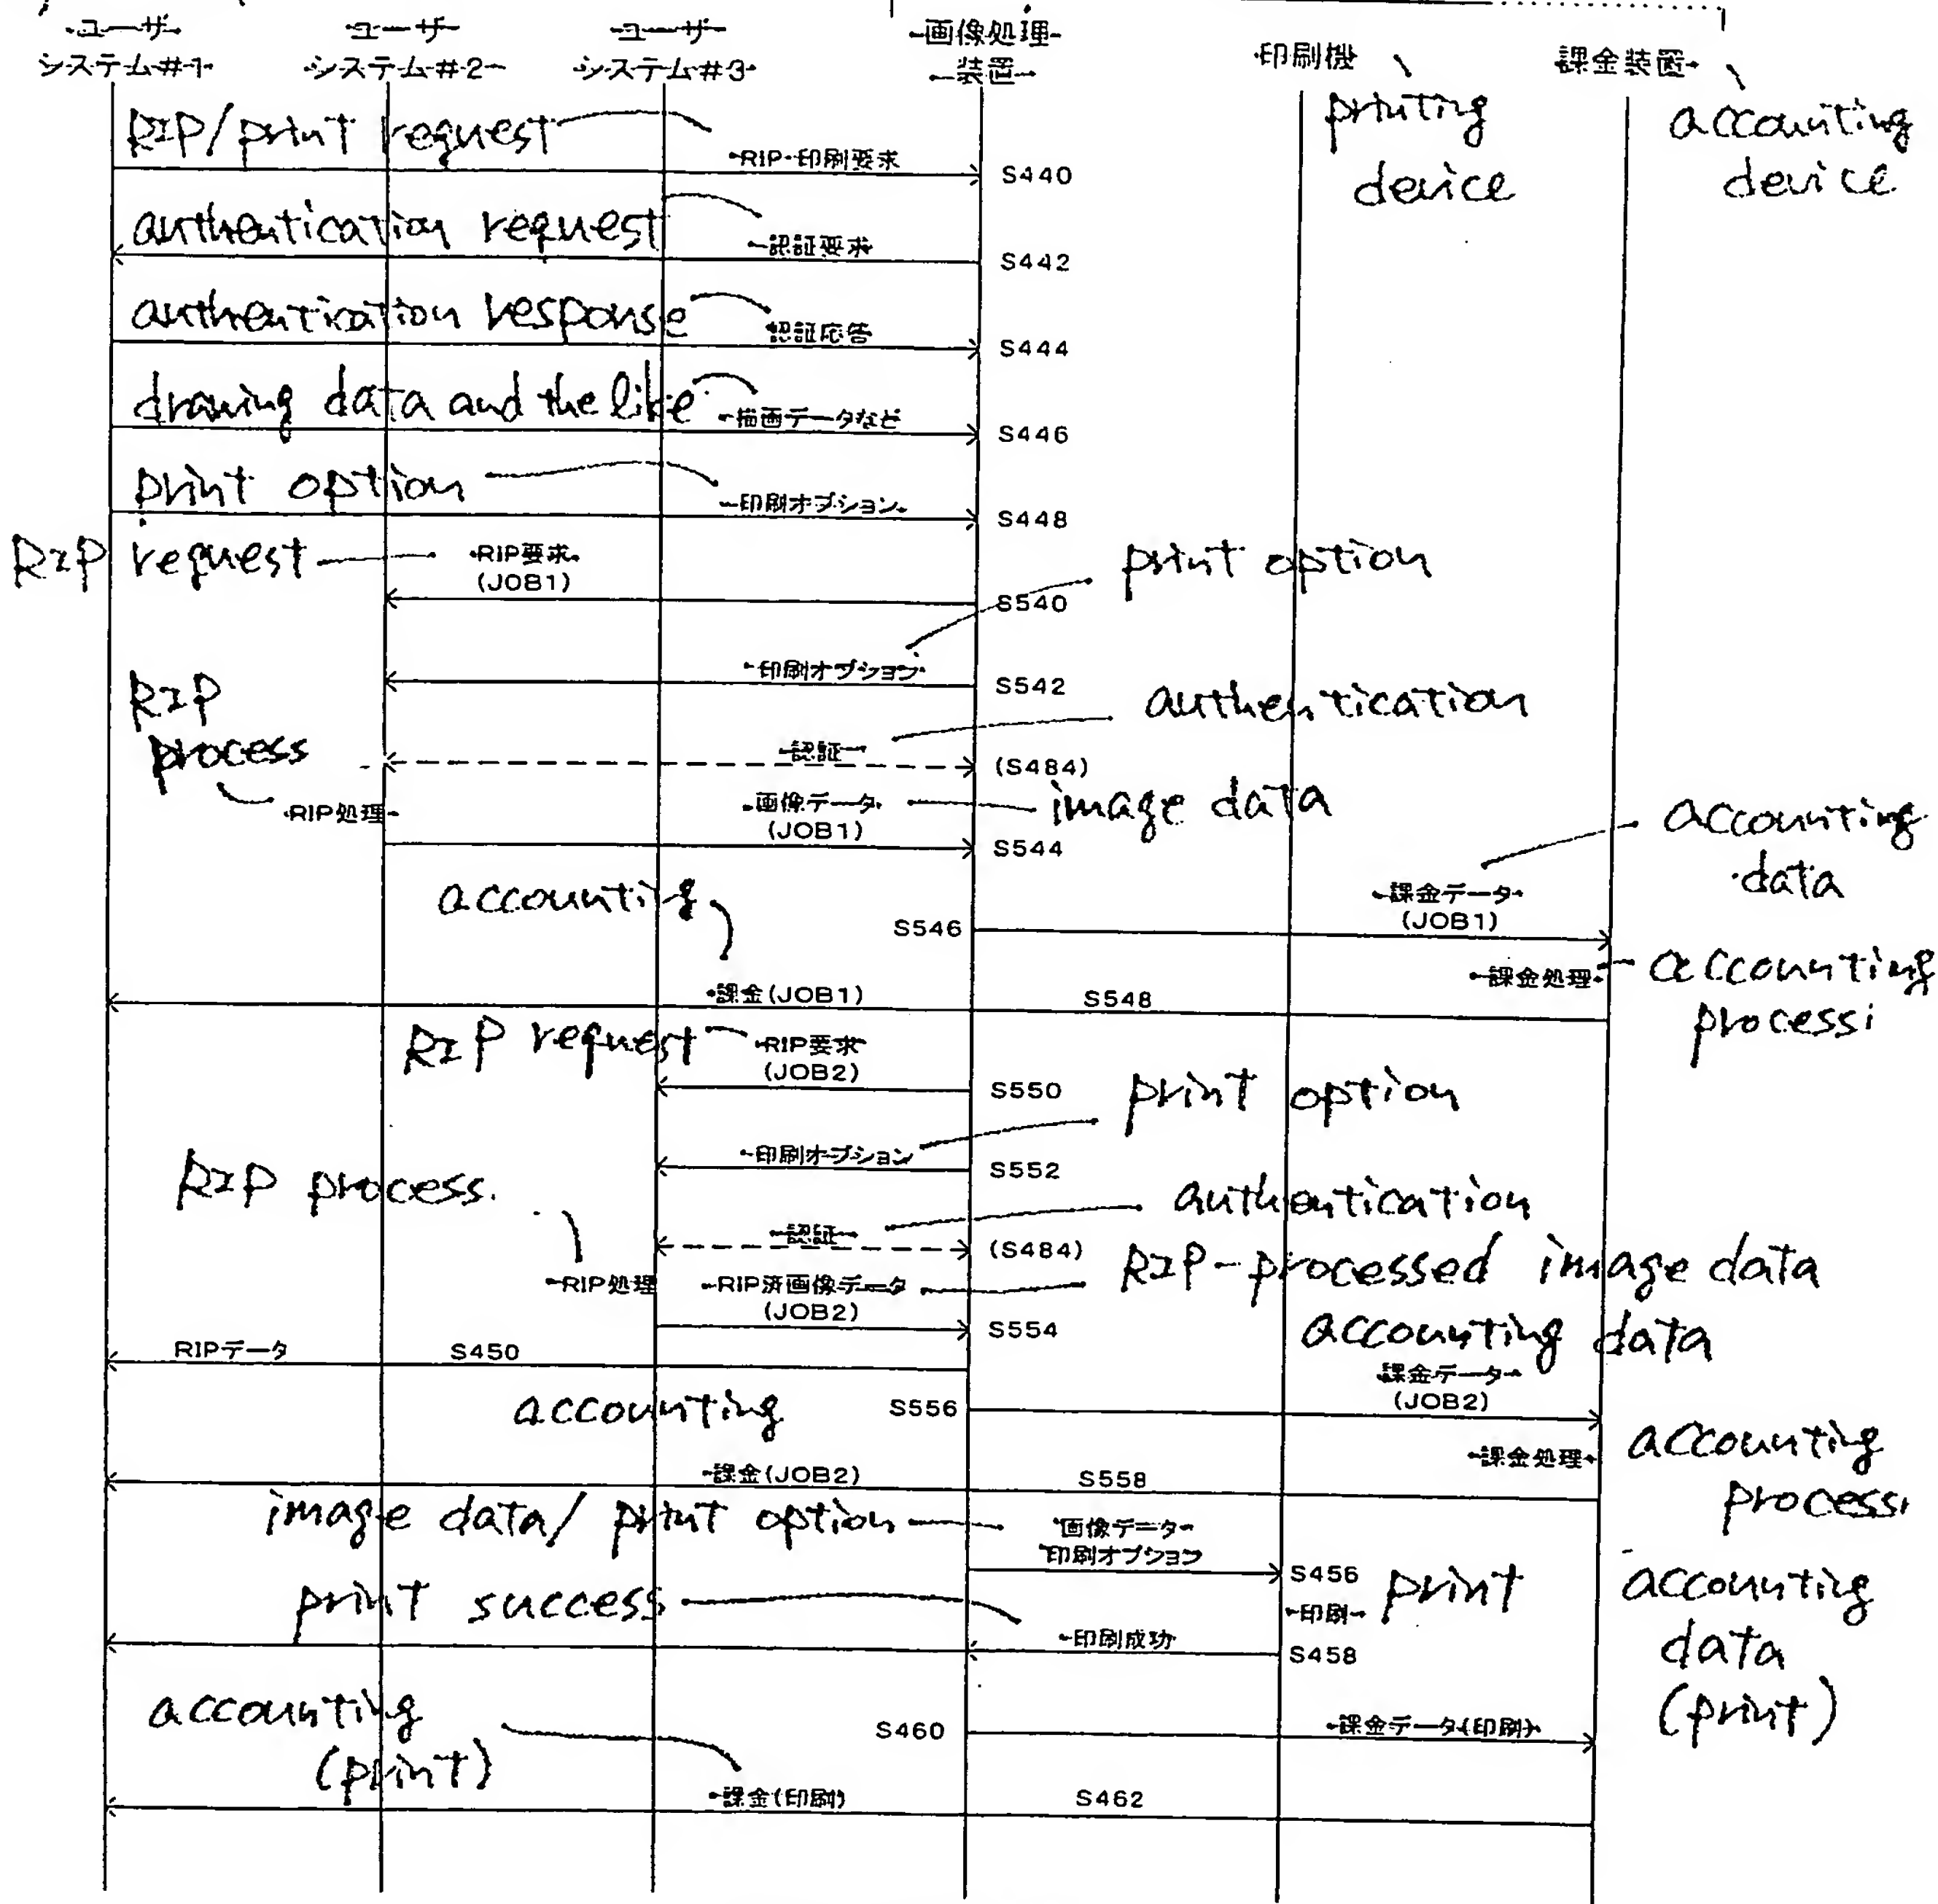 ユーザ
システム#1
ユーザ
システム#2
ユーザ
システム#3
画像処理
装置
印刷機
課金装置
printing
device
accounting
device
RIP/print request
RIP・印刷要求
S440
authentication request
認証要求
S442
authentication response
認証応答
S444
drawing data and the like
描画データなど
S446
print option
印刷オプション
S448
RIP request
RIP要求
(JOB1)
S540
print option
印刷オプション
S542
RIP
process
authentication
認証
(S484)
RIP処理
画像データ
(JOB1)
image data
S544
accounting
data
課金データ
(JOB1)
accounting
S546
課金処理
accounting
processi
課金(JOB1)
S548
RIP request
RIP要求
(JOB2)
S550
print option
印刷オプション
S552
RIP process
authentication
認証
(S484)
RIP処理
RIP済画像データ
(JOB2)
RIP-processed image data
S554
accounting data
RIPデータ
S450
課金データ
(JOB2)
accounting
S556
課金処理
accounting
processi
課金(JOB2)
S558
image data/ print option
画像データ
印刷オプション
S456
print success
印刷
print
印刷成功
S458
accounting
data
(print)
accounting
(print)
S460
課金データ(印刷)
課金(印刷)
S462